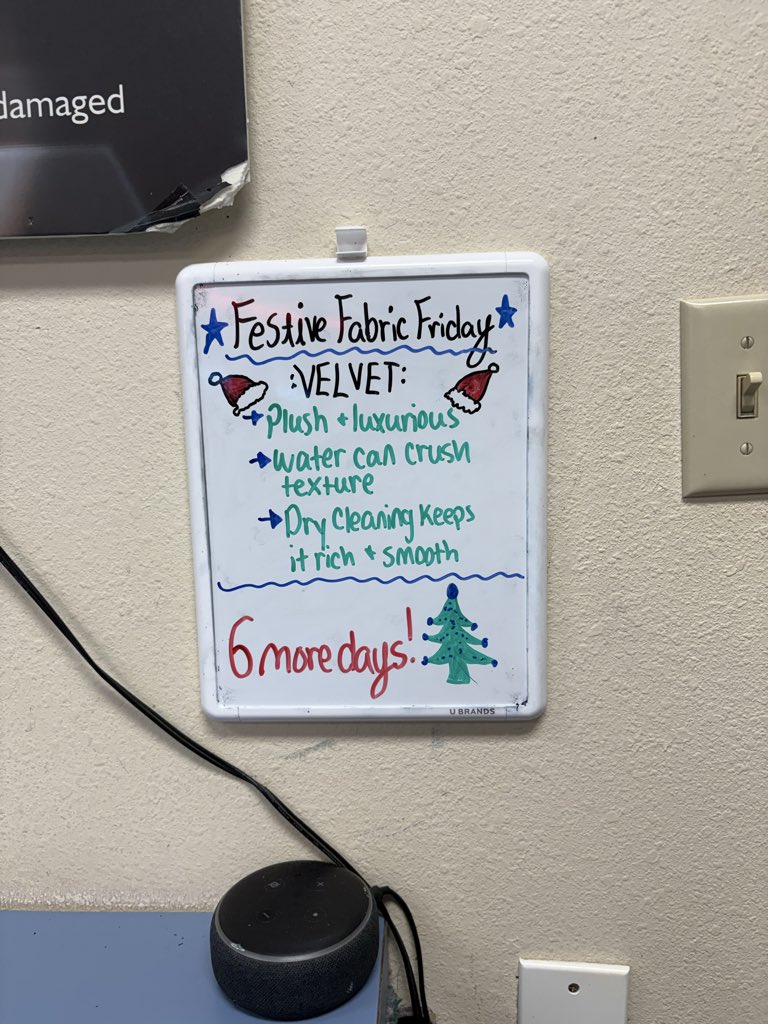 damaged
Festive Fabric Friday
:VELVET:
Plush + luxurious
water can crush
texture
Dry Cleaning Keeps
it rich + smooth
6 more days!
U BRANDS